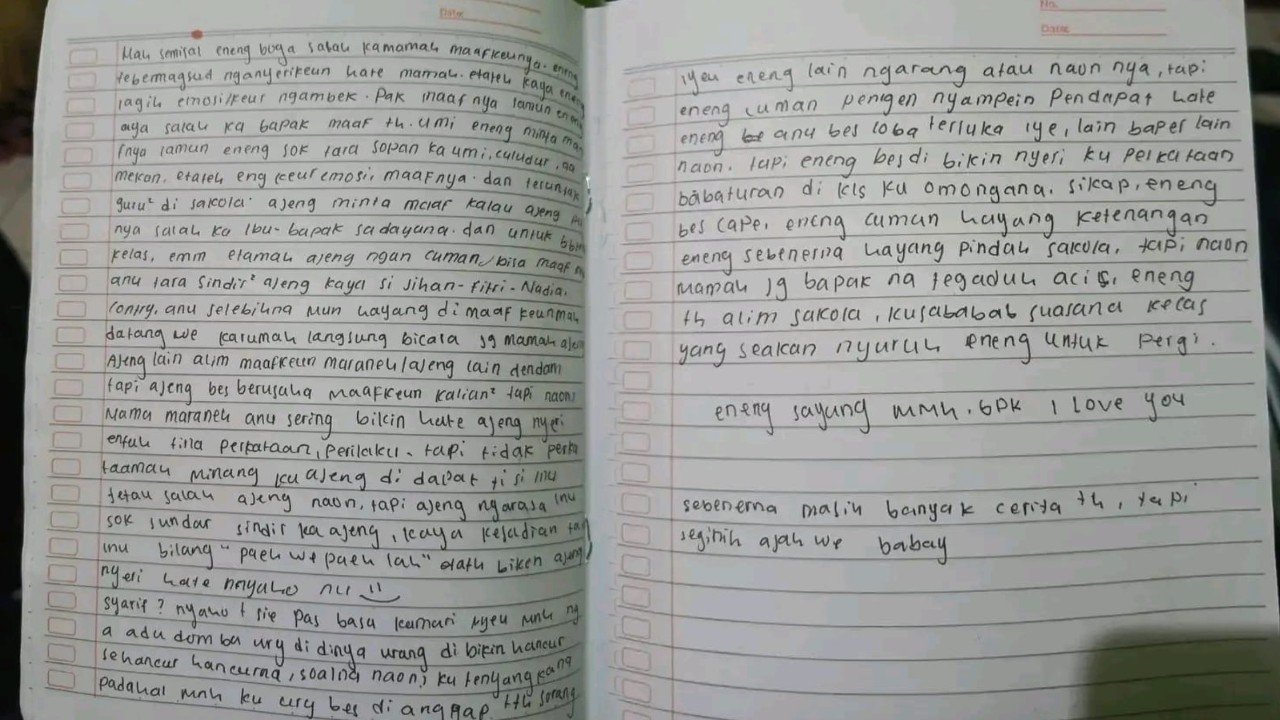 Date:
Mah semisal eneng boga salah kamamah maafkeunya. eneng
tebermagsud nganyerikeun hate mamah. etateh kaya eneng
lagih emosi/keur ngambek. Pak maaf nya lamun eneng
aya salah ka bapak maaf th. umi eneng minta maa
fnya lamun eneng sok tara sopan ka umi, culudur,
mekon. etateh eng keur emosi, maafnya. dan teruntuk
guru² di sakola ajeng minta maaf kalau ajeng
nya salah ka Ibu-bapak sadayana. dan untuk
kelas, emm etamah ajeng ngan cuman bisa maaf
anu tara sindir² ajeng kaya si Jihan-Fitri-Nadia.
anu selebihna mun hayang di maaf keunmah
datang we karumah langsung bicara jg mamah ajeng
Ajeng lain alim maafkeun maraneh/ajeng lain dendam
tapi ajeng bes berusaha maafkeun kalian² tapi naon
Nama maraneh anu sering bikin hate ajeng nyeri
entah tina perkataan, perilaku. tapi tidak perka
taamah minang ku ajeng di dapat ti si inu
tetau salah ajeng naon, tapi ajeng ngarasa inu
sok sundar sindir ka ajeng, kaya kejadian
inu bilang "paeh we paeh lah" etath biken ajeng
nyeri hate nnyaho nu
syarif? nyaho t sie pas basa kamari iyeu mnh ng
a adu domba ury di dinya urang di bikin hancur
sehancur hancurna, soalna naon? ku tenyangkang
padahal mnh ku ury bes di anggap tth sorang
No.
Date
iyeu eneng lain ngarang atau naon nya, tapi
eneng cuman pengen nyampein Pendapat hate
eneng anu bes loba terluka iye, lain baper lain
naon. tapi eneng besdi bikin nyeri ku perkataan
babaturan di kls ku omongana. sikap, eneng
bes cape, eneng cuman hayang ketenangan
eneng sebenerna hayang pindah sakola, tapi naon
mamah jg bapak na tegaduh acis, eneng
th alim sakola, kusababab suasana kelas
yang seakan nyuruh eneng untuk pergi.
eneng sayang mmh. bpk I love you
sebenerna masih banyak cerita th, tapi
segitih ajah we babay